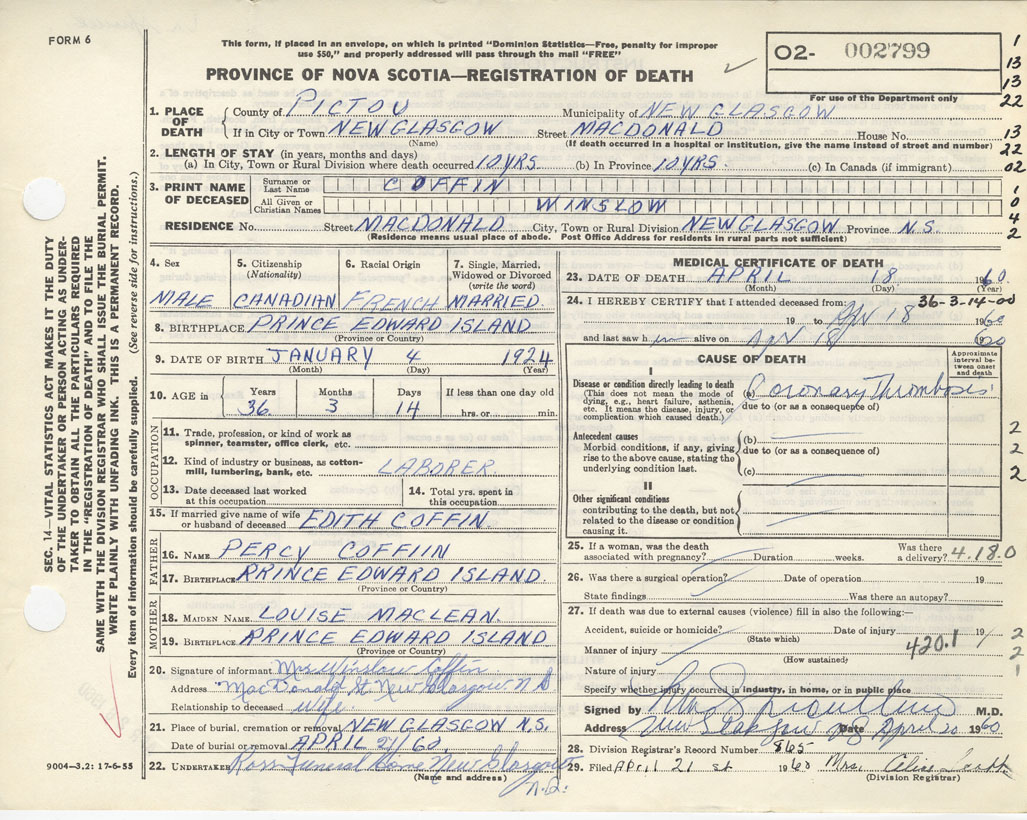 FORM 6
This form, if placed in an envelope, on which is printed "Dominion Statistics—Free, penalty for improper
use $50," and properly addressed will pass through the mail "FREE"
PROVINCE OF NOVA SCOTIA—REGISTRATION OF DEATH
O2- 002799
For use of the Department only
1
13
13
22
13
22
02
1
0
4
2
1. PLACE OF DEATH
County of PICTOU Municipality of NEW GLASGOW
If in City or Town NEW GLASGOW Street MACDONALD House No.
(Name) (If death occurred in a hospital or institution, give the name instead of street and number)
2. LENGTH OF STAY (in years, months and days)
(a) In City, Town or Rural Division where death occurred 10 YRS. (b) In Province 10 YRS. (c) In Canada (if immigrant)
3. PRINT NAME OF DECEASED
Surname or Last Name COFFIN
All Given or Christian Names WINSLOW
RESIDENCE No. Street MACDONALD City, Town or Rural Division NEW GLASGOW Province N.S.
(Residence means usual place of abode. Post Office Address for residents in rural parts not sufficient)
4. Sex MALE
5. Citizenship (Nationality) CANADIAN
6. Racial Origin FRENCH
7. Single, Married, Widowed or Divorced (write the word) MARRIED.
8. BIRTHPLACE PRINCE EDWARD ISLAND
(Province or Country)
9. DATE OF BIRTH JANUARY 4 1924
(Month) (Day) (Year)
10. AGE in Years 36 Months 3 Days 14 If less than one day hrs. or min.
OCCUPATION
11. Trade, profession, or kind of work as spinner, teamster, office clerk, etc.
12. Kind of industry or business, as cotton-mill, lumbering, bank, etc. LABORER
13. Date deceased last worked at this occupation
14. Total yrs. spent in this occupation
15. If married give name of wife or husband of deceased EDITH COFFIN
FATHER
16. NAME PERCY COFFIIN
17. BIRTHPLACE PRINCE EDWARD ISLAND.
(Province or Country)
MOTHER
18. MAIDEN NAME LOUISE MACLEAN.
19. BIRTHPLACE PRINCE EDWARD ISLAND
(Province or Country)
20. Signature of informant Mrs Winslow Coffin
Address MacDonald St. New Glasgow N S
Relationship to deceased wife.
21. Place of burial, cremation or removal NEW GLASGOW N.S.
Date of burial or removal APRIL 21/60.
22. UNDERTAKER Ross Funeral Home New Glasgow
(Name and address)
N.S.
MEDICAL CERTIFICATE OF DEATH
23. DATE OF DEATH APRIL 18 1960.
(Month) (Day) (Year)
24. I HEREBY CERTIFY that I attended deceased from: 36-3-14-00
19 to Apr 18 1960
and last saw him alive on Apr 18
CAUSE OF DEATH
Approximate interval between onset and death
I
Disease or condition directly leading to death
(This does not mean the mode of dying, e.g., heart failure, asthenia, etc. It means the disease, injury, or complication which caused death.)
(a) Coronary Thrombosis
due to (or as a consequence of)
Antecedent causes
Morbid conditions, if any, giving rise to the above cause, stating the underlying condition last.
(b)
due to (or as a consequence of)
(c)
II
Other significant conditions
contributing to the death, but not related to the disease or condition causing it.
2
2
2
25. If a woman, was the death associated with pregnancy? Duration weeks. Was there a delivery? 4.18.0
26. Was there a surgical operation? Date of operation 19
State findings Was there an autopsy?
27. If death was due to external causes (violence) fill in also the following:—
Accident, suicide or homicide? Date of injury 19
(State which)
Manner of injury 420.1
(How sustained)
Nature of injury
2
2
1
Specify whether injury occurred in industry, in home, or in public place
Signed by M.D.
Address New Glasgow Date April 20 1960
28. Division Registrar's Record Number 865
29. Filed April 21 st 1960 Mrs. Alice
(Division Registrar)
SEC. 14—VITAL STATISTICS ACT MAKES IT THE DUTY
OF THE UNDERTAKER OR PERSON ACTING AS UNDER-
TAKER TO OBTAIN ALL THE PARTICULARS REQUIRED
IN THE "REGISTRATION OF DEATH" AND TO FILE THE
SAME WITH THE DIVISION REGISTRAR WHO SHALL ISSUE THE BURIAL PERMIT.
WRITE PLAINLY WITH UNFADING INK. THIS IS A PERMANENT RECORD.
Every item of information should be carefully supplied. (See reverse side for instructions.)
9004—3.2: 17-6-55